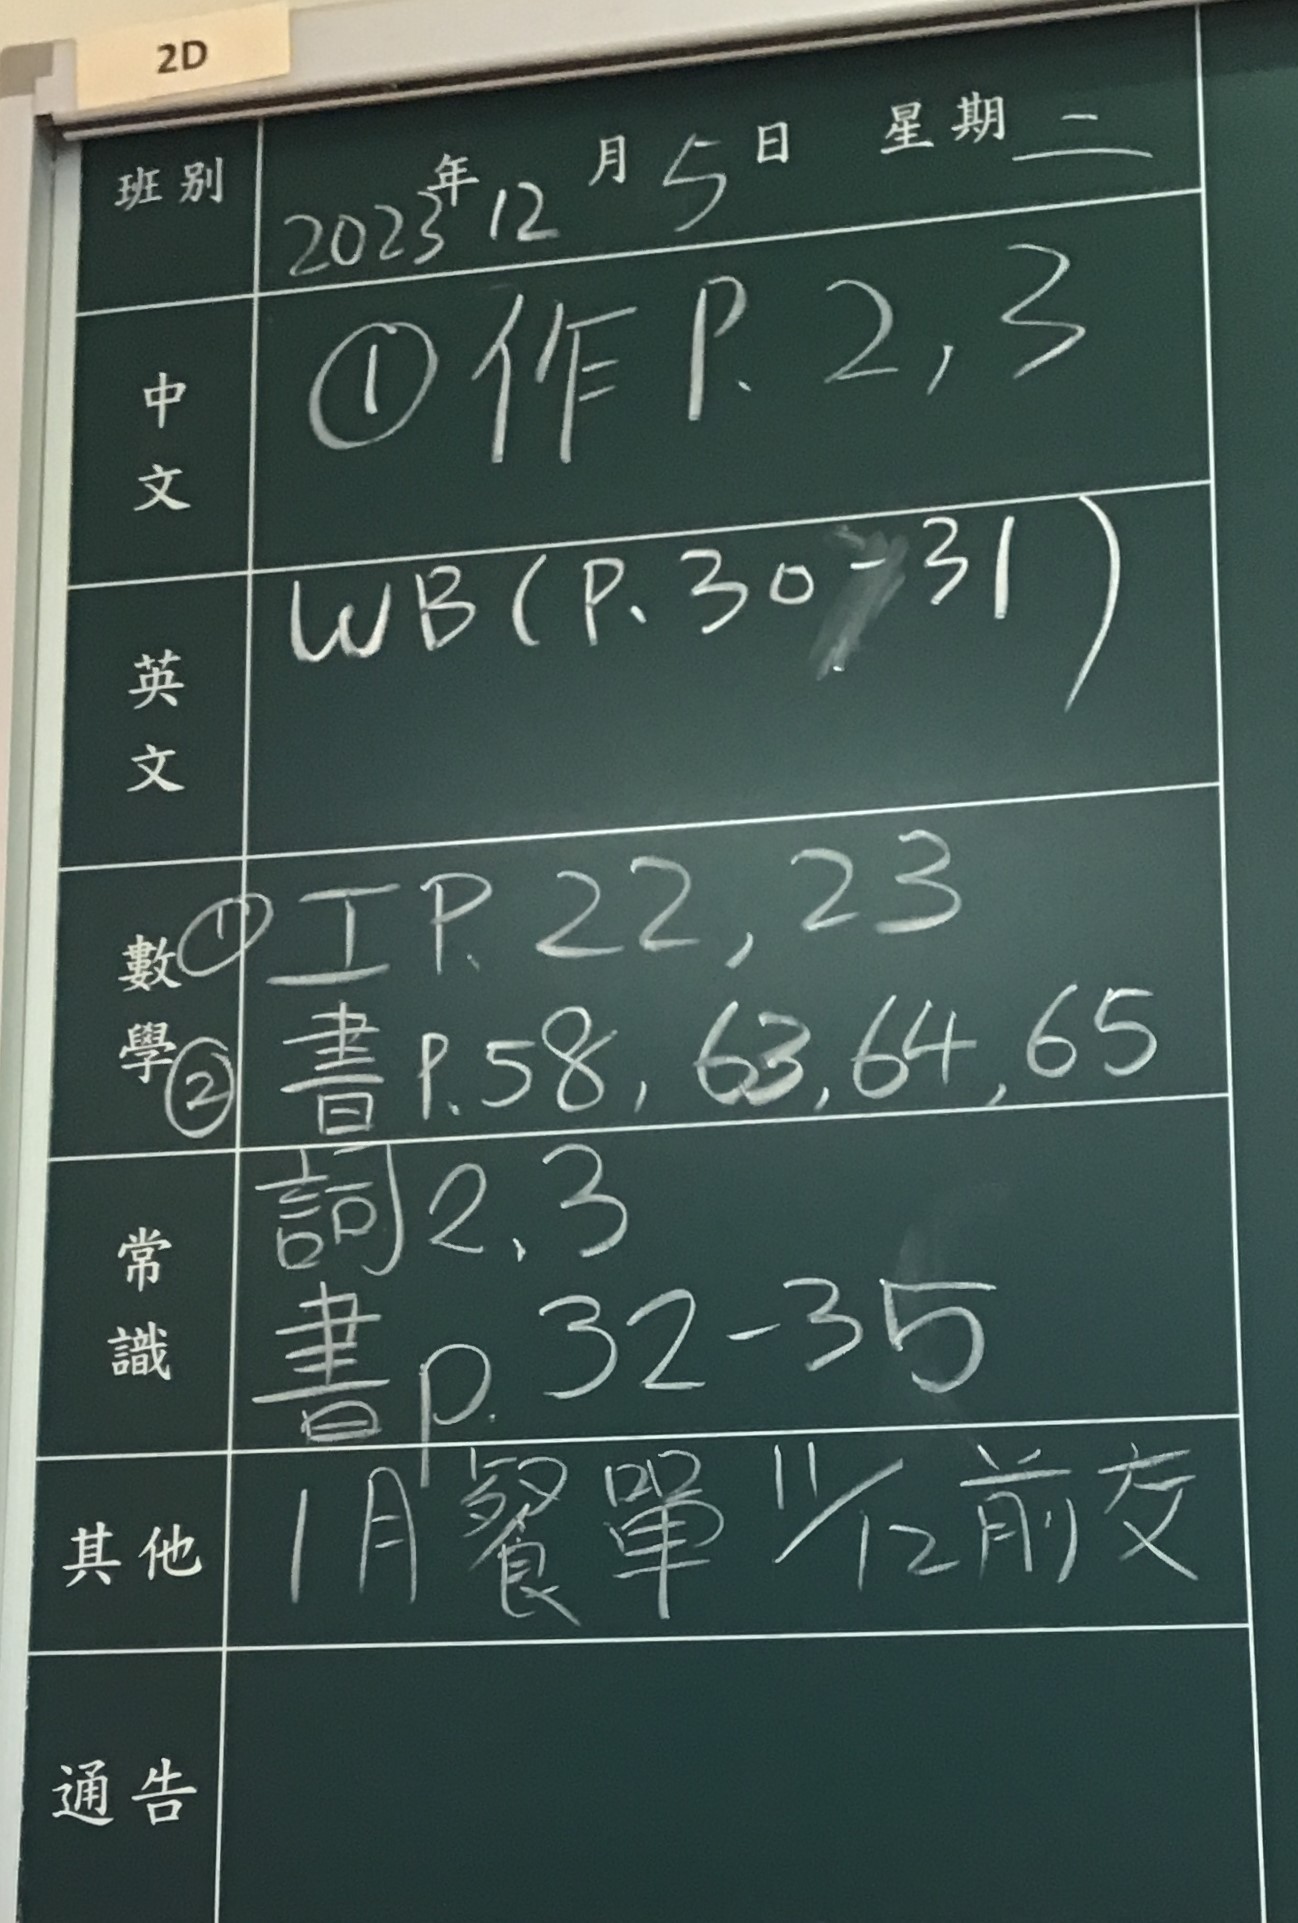 2D
班別
2023年12月5日 星期二
中文
①作 P. 2, 3
英文
WB (P. 30-31)
數學
①工 P. 22, 23
②書 P. 58, 63, 64, 65
常識
詞 2, 3
書 p. 32-35
其他
1月餐單 11/12前交
通告